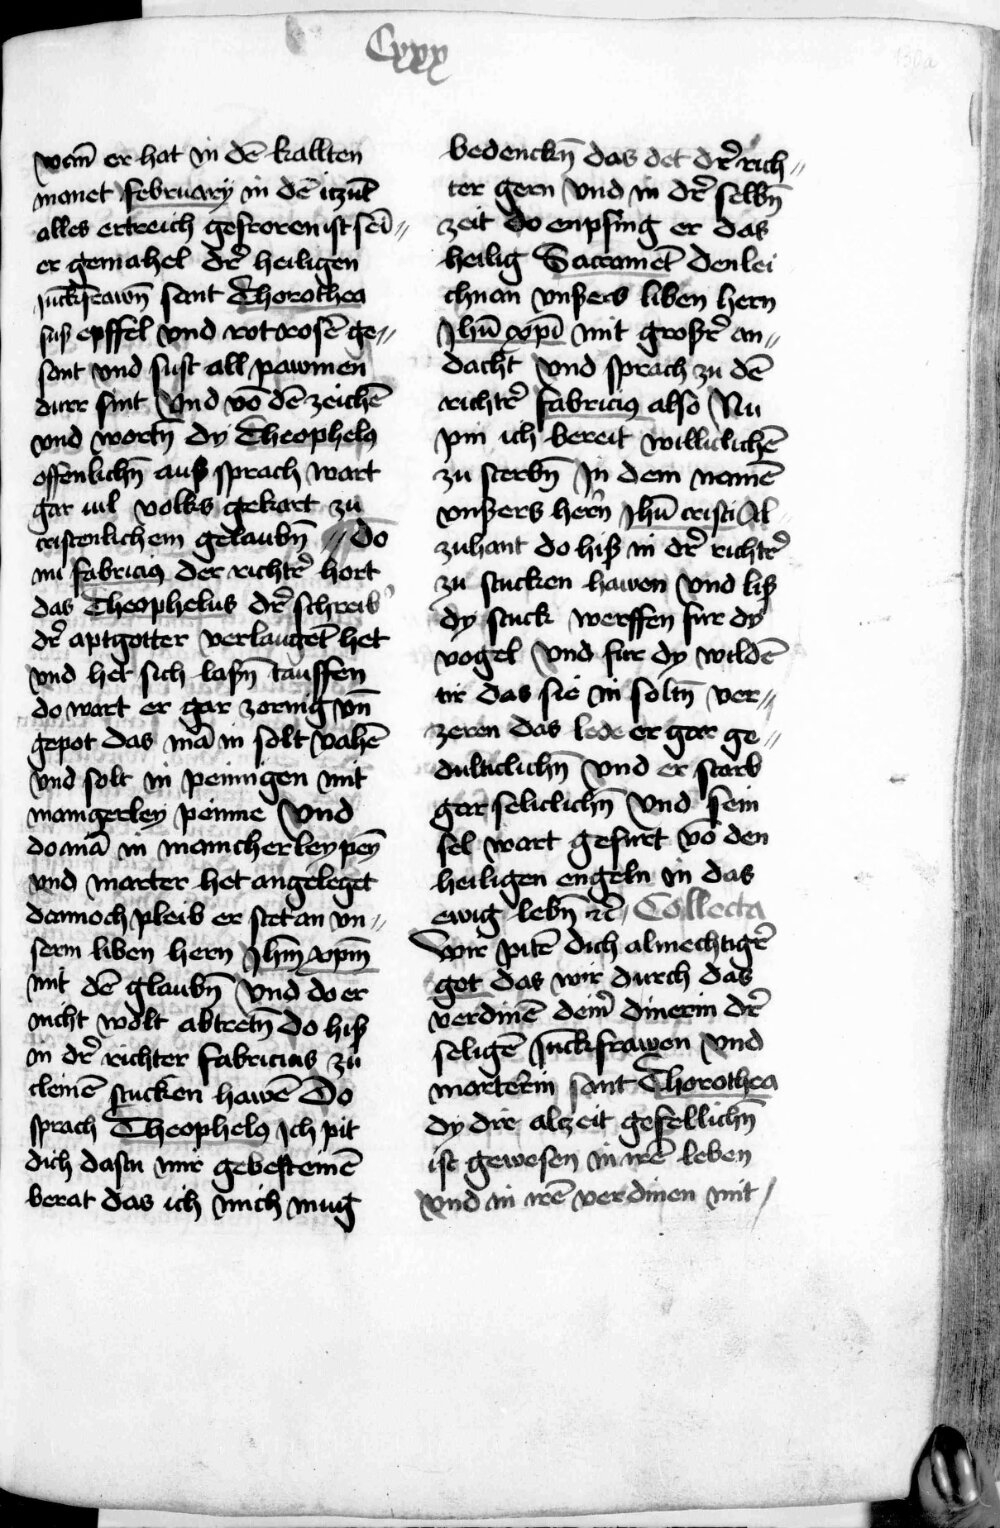 Cxxx
130a
wan̄ er hat in dē kallten
monet february in dē itzūt
alles ertreich gefroren ist sei⸗
er gemahel dr̄ heiligen
Junckfrawn̄ sant Thorothea
suß epffel vnd rot rosē ge⸗
sant vnd sust all pawmen
durr sint Vnd vō dē zeichē
vnd wortn̄ dy Theophelꝯ
offenlichn̄ auß sprach wart
gar uil volks gekart zu
cristenlichem gelaubn̄ Do
nu fabriciꝯ der richtr̄ hort
das Theophelus dr̄ schreib
dr̄ aptgotter verlaugēt het
vnd het sich laßn̄ tauffen
do wart er gar zornig vn̄
gepot das mā in solt vahē
vnd solt in peinnigen mit
mangerley peinne Vnd
do mā in mancherley pey̅
vnd marter het angeleget
dannoch pleib er stet an vn⸗
serm liben hern Jhm̄ xpm̄
mit dē glaubn̄ Vnd do er
nicht wolt abtretn̄ Do hiß
in dr̄ richter fabricius zu
cleinē stucken hawē Do
sprach Theophelꝯ Jch pit
dich dastu mir gebest einē
berat das ich mich mug
bedenckn̄ das det dr̄ rich⸗
ter gern Vnd in dr̄ selbn̄
zeit do enpfing er das
heilig Sacramēt den lei
chnan vnßers liben hern
Jhū xpī mit großr̄ an⸗
dacht Vnd sprach zu dē
richtr̄ fabriciꝯ also Nu
pin ich bereit williclichē
zu sterbn̄ Jn dem namē
vnßers hern̄ Jhū cristi Al
zuhant do hiß in dr̄ richtr̄
zu stucken hawen Vnd liß
dy stuck werffen fur dy
vogel Vnd fur dy wildē
tir das sie in soltn̄ ver⸗
zeren das lede er gar ge⸗
dulticlichn̄ Vnd er starb
gar seliclichn̄ Vnd sein
sel wart gefurt vō den
heiligen engeln in das
ewig lebn̄ ⁊c̄ Collecta
Wir pitē dich almechtigr̄
got das wir durch das
verdinē dein̄ dinerin dr̄
seligē Junckfrawen Vnd
marterin sant Thorothea
dy dir alzeit gefellichn̄
ist gewesen in irē leben
Vnd in irē verdinen mit